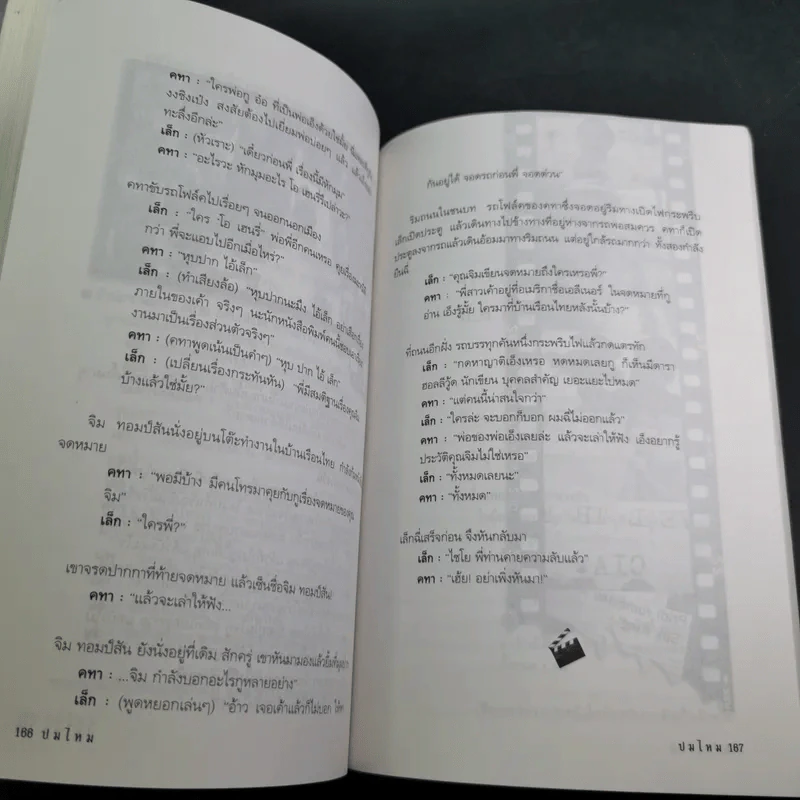 คทา : "ใครพ่อกู อ๋อ ที่เป็นพ่อเอ็งด้วยใช่มั้ย
งงชิงเป๋ง สงสัยต้องไปเยี่ยมพ่อบ่อยๆ แล้ว แล้ว
ทะลึ่งอีกล่ะ"
เล็ก : (หัวเราะ) "เดี๋ยวก่อนพี่ เรื่องนี้มีหักมุม"
คทา : "อะไรวะ หักมุมอะไร โอ เฮนรี่เปล่าวะ"
คทาขับรถโฟล์คไปเรื่อยๆ จนออกนอกเมือง
เล็ก : "ใคร 'โอ เฮนรี่' พ่อพี่อีกคนเหรอ
กว่า พี่จะแอบไปอีกเมื่อไหร่?"
คทา : "หุบปาก ไอ้เล็ก"
เล็ก : (ทำเสียงล้อ) "หุบปากนะมึง ไอ้เล็ก
ภายในของเค้า จริงๆ นะนักหนังสือพิมพ์คนนี้
งานมาเป็นเรื่องส่วนตัวจริงๆ"
คทา : (คทาพูดเน้นเป็นคำๆ) "หุบ ปาก ไอ้ เล็ก"
เล็ก : (เปลี่ยนเรื่องกระทันหัน) "พี่มีสมติฐานเรื่อง
บ้างแล้วใช่มั้ย?"
จิม ทอมป์สันนั่งอยู่บนโต๊ะทำงานในบ้านเรือนไทย
จดหมาย
คทา : "พอมีบ้าง มีคนโทรมาคุยกับกูเรื่องจดหมายของคุณ
จิม"
เล็ก : "ใครพี่?"
เขาจรดปากกาที่ท้ายจดหมาย แล้วเซ็นชื่อจิม ทอมป์สัน!
คทา : "แล้วจะเล่าให้ฟัง...
จิม ทอมป์สัน ยังนั่งอยู่ที่เดิม สักครู่ เขาหันมามองแล้วยิ้มที่มุมปาก
คทา : ...จิม กำลังบอกอะไรกูหลายอย่าง"
เล็ก : (พูดหยอกเล่นๆ) "อ้าว เจอเค้าแล้วก็ไม่บอก
166 ปมไหม
กันอยู่ได้ จอดรถก่อนพี่ จอดด่วน"
ริมถนนในชนบท รถโฟล์คของคทาซึ่งจอดอยู่ริมทางเปิดไฟกระพริบ
เล็กเปิดประตู แล้วเดินทางไปข้างทางที่อยู่ห่างจากรถพอสมควร คทาก็เปิด
ประตูลงจากรถแล้วเดินอ้อมมาทางริมถนน แต่อยู่ใกล้รถมากกว่า ทั้งสองกำลัง
ยืนฉี่
เล็ก : "คุณจิมเขียนจดหมายถึงใครเหรอพี่?"
คทา : "พี่สาวเค้าอยู่ที่อเมริกาชื่อเอลีเนอร์ ในจดหมายที่กู
อ่าน เอ็งรู้มั้ย ใครมาที่บ้านเรือนไทยหลังนั้นบ้าง?"
ที่ถนนอีกฝั่ง รถบรรทุกคันหนึ่งกระพริบไฟแล้วกดแตรทัก
เล็ก : "กดหาญาติเอ็งเหรอ หดหมดเลยกู ก็เห็นมีดารา
ฮอลลิวู้ด นักเขียน บุคคลสำคัญ เยอะแยะไปหมด"
คทา : "แต่คนนี้น่าสนใจกว่า"
เล็ก : "ใครล่ะ จะบอกก็บอก ผมฉี่ไม่ออกแล้ว"
คทา : "พ่อของพ่อเอ็งเลยล่ะ แล้วจะเล่าให้ฟัง เอ็งอยากรู้
ประวัติคุณจิมไม่ใช่เหรอ"
เล็ก : "ทั้งหมดเลยนะ"
คทา : "ทั้งหมด"
เล็กฉี่เสร็จก่อน จึงหันกลับมา
เล็ก : "ไชโย พี่ท่านคายความลับแล้ว"
คทา : "เฮ้ย! อย่าเพิ่งหันมา!"
ปมไหม 167